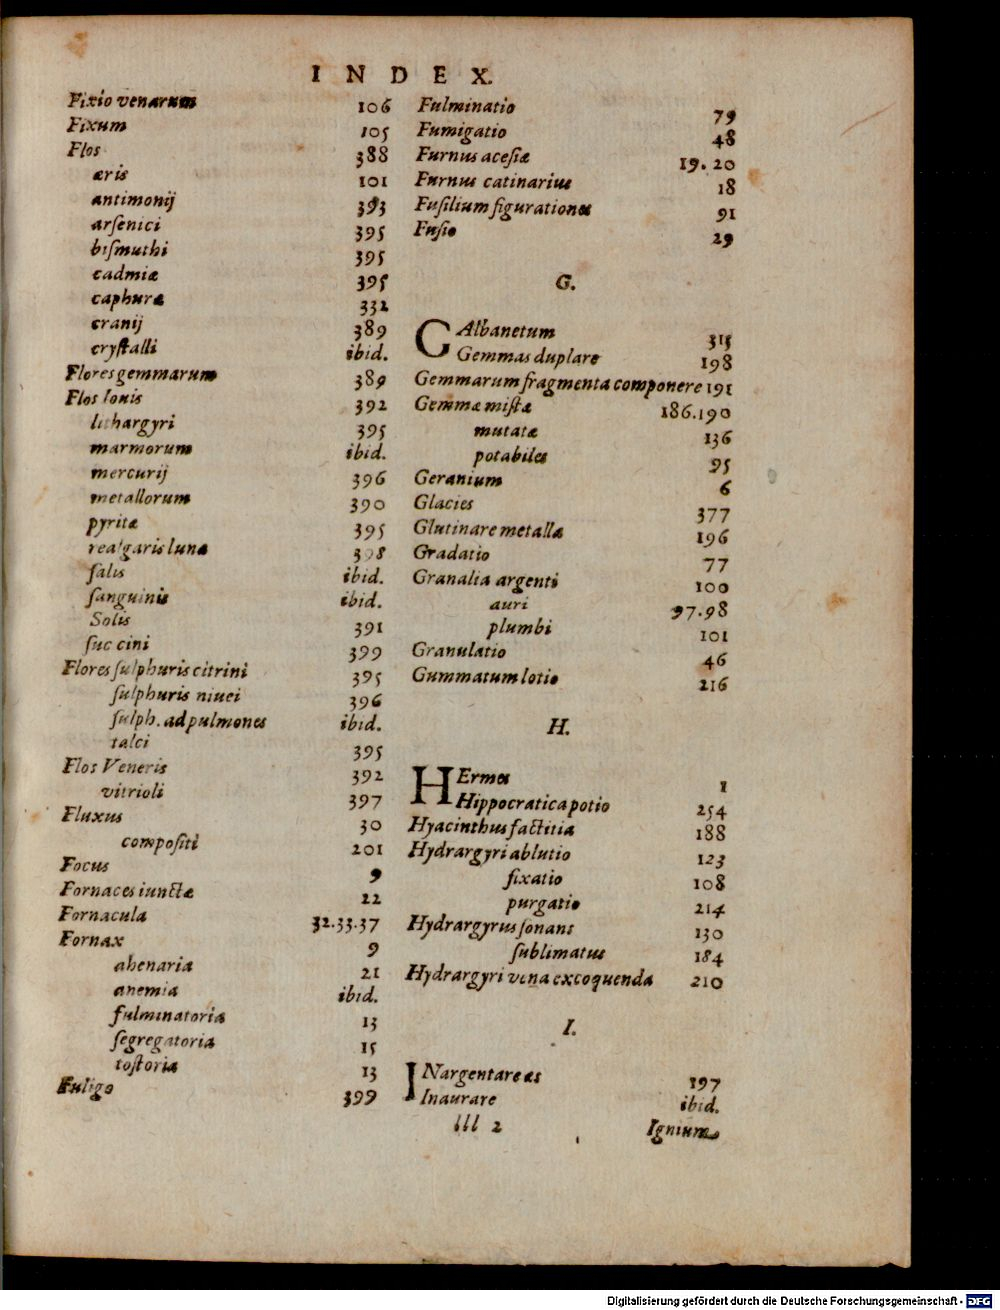 INDEX.
Fixio venarum 106
Fixum 105
Flos 388
æris 101
antimonij 393
arſenici 395
biſmuthi 395
cadmiæ 395
caphuræ 332
cranij 389
cryſtalli ibid.
Flores gemmarum 389
Flos Iouis 392
lithargyri 395
marmorum ibid.
mercurij 396
metallorum 390
pyritæ 395
realgaris lunæ 398
ſalis ibid.
ſanguinis ibid.
Solis 391
ſuccini 399
Flores ſulphuris citrini 395
ſulphuris niuei 396
ſulph. ad pulmones ibid.
talci 395
Flos Veneris 392
vitrioli 397
Fluxus 30
compoſiti 201
Focus 9
Fornaces iunctæ 22
Fornacula 32.33.37
Fornax 9
ahenaria 21
anemia ibid.
fulminatoria 13
ſegregatoria 15
toſtoria 13
Fuligo 399
Fulminatio 79
Fumigatio 48
Furnus aceſiæ 19.20
Furnus catinarius 18
Fuſilium figurationes 91
Fuſio 29
G.
GAlbanetum 315
Gemmas duplare 198
Gemmarum fragmenta componere 191
Gemmæ miſtæ 186.190
mutatæ 136
potabiles 95
Geranium 6
Glacies 377
Glutinare metalla 196
Gradatio 77
Granalia argenti 100
auri 97.98
plumbi 101
Granulatio 46
Gummatum lotio 216
H.
HErmes 1
Hippocratica potio 254
Hyacinthus factitia 188
Hydrargyri ablutio 123
fixatio 108
purgatio 214
Hydrargyrus ſonans 130
ſublimatus 184
Hydrargyri vena excoquenda 210
I.
INargentare æs 197
Inaurare ibid.
lll 2 Ignium
Digitalisierung gefördert durch die Deutsche Forschungsgemeinschaft - DFG